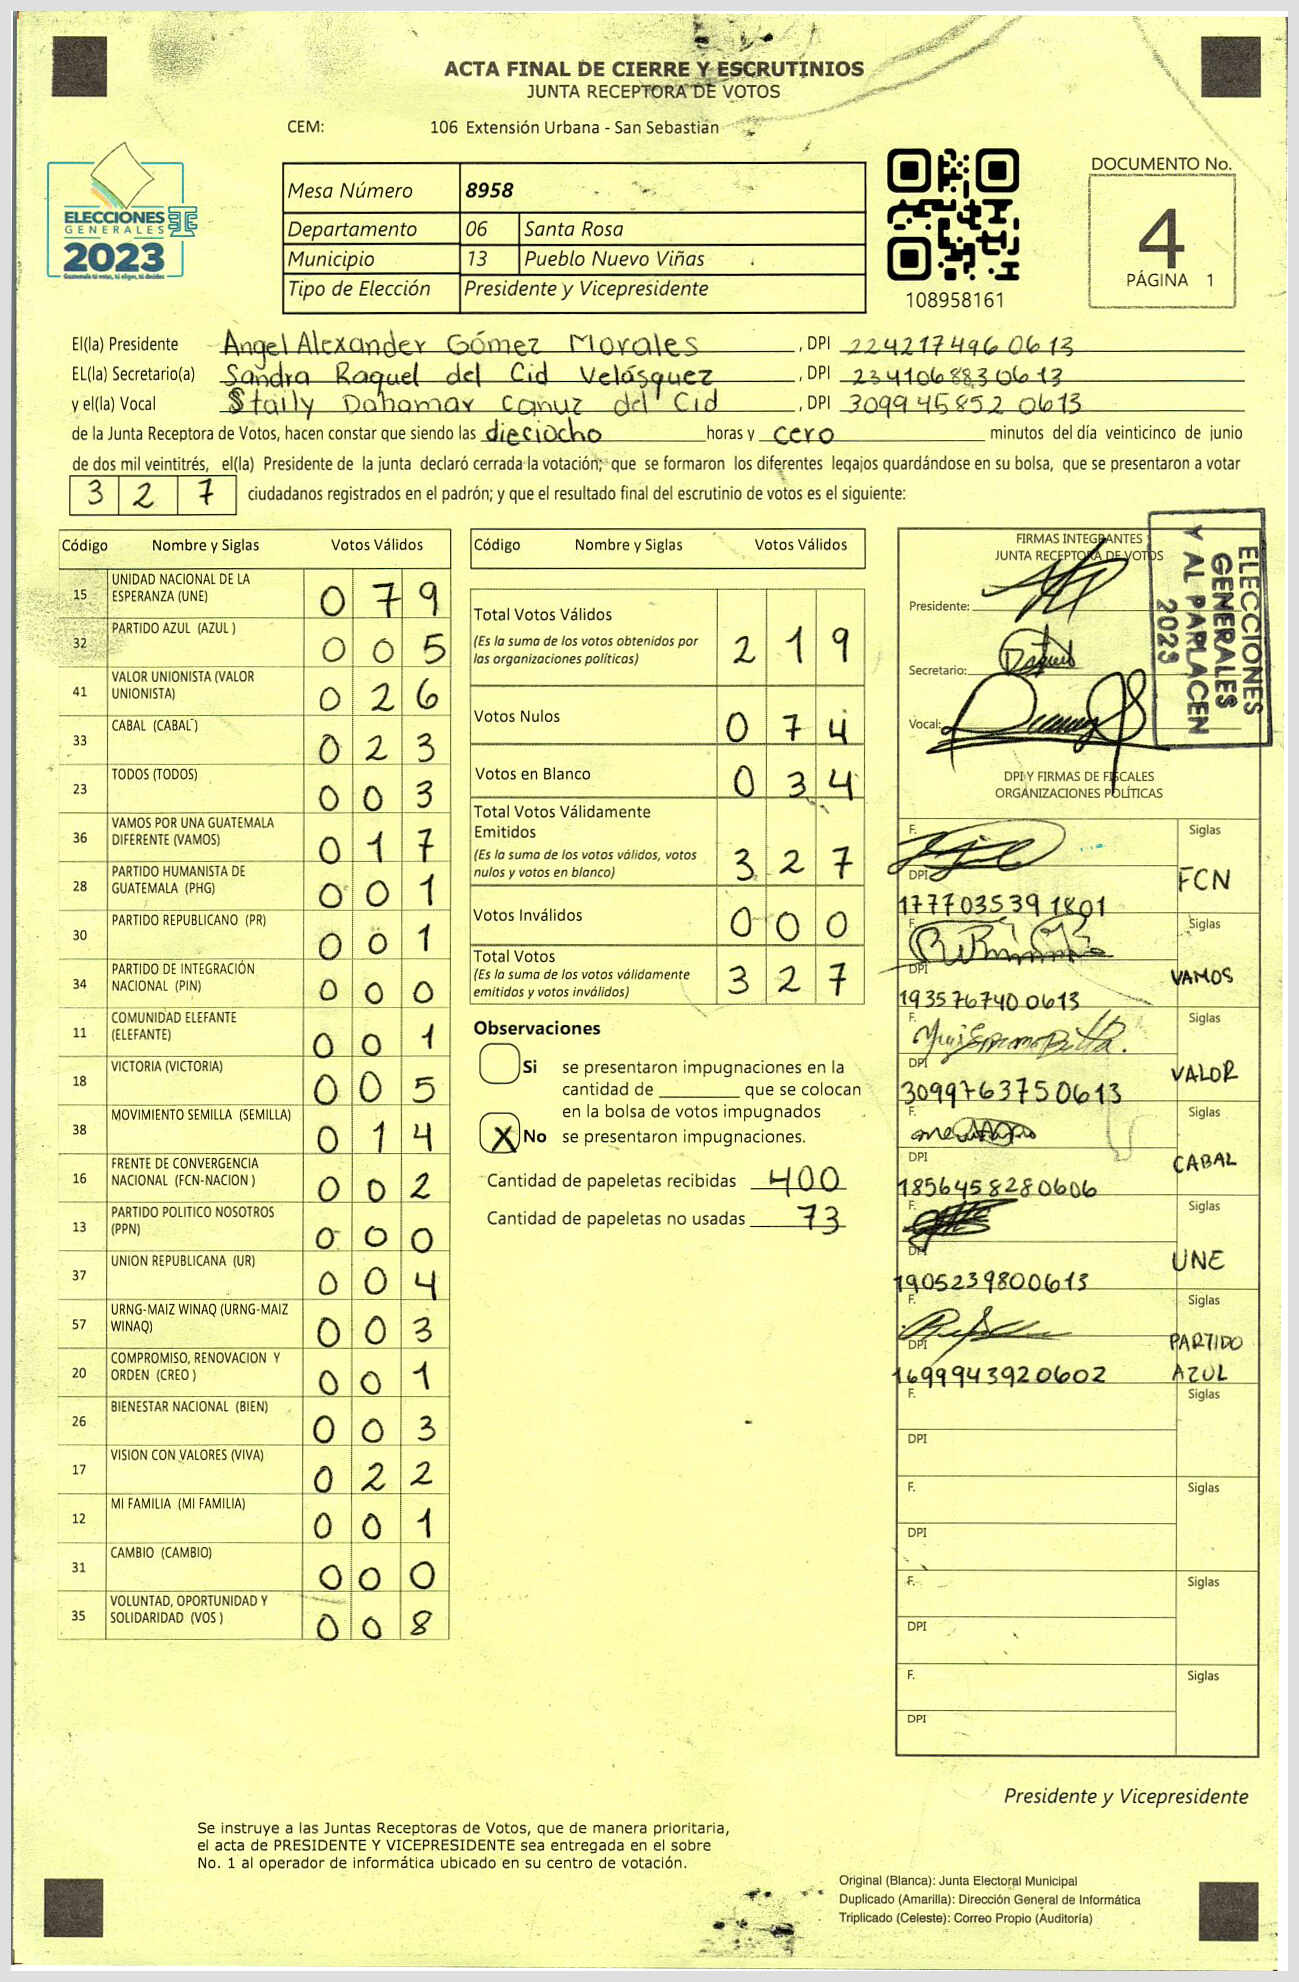 ACTA FINAL DE CIERRE Y ESCRUTINIOS
JUNTA RECEPTORA DE VOTOS
CEM: 106 Extensión Urbana - San Sebastian
ELECCIONES
GENERALES
2023
Guatemala tú votas, tú eliges, tú decides
Mesa Número 8958
Departamento 06 Santa Rosa
Municipio 13 Pueblo Nuevo Viñas
Tipo de Elección Presidente y Vicepresidente
108958161
DOCUMENTO No.
4
PÁGINA 1
El(la) Presidente Angel Alexander Gómez Morales, DPI 2242174960613
EL(la) Secretario(a) Sandra Raquel del Cid Velásquez, DPI 2341068830613
y el(la) Vocal Staily Dahamar Canuz del Cid, DPI 309945852 0613
de la Junta Receptora de Votos, hacen constar que siendo las dieciocho horas y cero minutos del día veinticinco de junio
de dos mil veintitrés, el(la) Presidente de la junta declaró cerrada la votación; que se formaron los diferentes legajos guardándose en su bolsa, que se presentaron a votar
3 2 7 ciudadanos registrados en el padrón; y que el resultado final del escrutinio de votos es el siguiente:
Código Nombre y Siglas Votos Válidos
15 UNIDAD NACIONAL DE LA ESPERANZA (UNE) 0 7 9
32 PARTIDO AZUL (AZUL ) 0 0 5
41 VALOR UNIONISTA (VALOR UNIONISTA) 0 2 6
33 CABAL (CABAL ) 0 2 3
23 TODOS (TODOS) 0 0 3
36 VAMOS POR UNA GUATEMALA DIFERENTE (VAMOS) 0 1 7
28 PARTIDO HUMANISTA DE GUATEMALA (PHG) 0 0 1
30 PARTIDO REPUBLICANO (PR) 0 0 1
34 PARTIDO DE INTEGRACIÓN NACIONAL (PIN) 0 0 0
11 COMUNIDAD ELEFANTE (ELEFANTE) 0 0 1
18 VICTORIA (VICTORIA) 0 0 5
38 MOVIMIENTO SEMILLA (SEMILLA) 0 1 4
16 FRENTE DE CONVERGENCIA NACIONAL (FCN-NACION ) 0 0 2
13 PARTIDO POLITICO NOSOTROS (PPN) 0 0 0
37 UNION REPUBLICANA (UR) 0 0 4
57 URNG-MAIZ WINAQ (URNG-MAIZ WINAQ) 0 0 3
20 COMPROMISO, RENOVACION Y ORDEN (CREO ) 0 0 1
26 BIENESTAR NACIONAL (BIEN) 0 0 3
17 VISION CON VALORES (VIVA) 0 2 2
12 MI FAMILIA (MI FAMILIA) 0 0 1
31 CAMBIO (CAMBIO) 0 0 0
35 VOLUNTAD, OPORTUNIDAD Y SOLIDARIDAD (VOS ) 0 0 8
Código Nombre y Siglas Votos Válidos
Total Votos Válidos 2 1 9
(Es la suma de los votos obtenidos por
las organizaciones políticas)
Votos Nulos 0 7 4
Votos en Blanco 0 3 4
Total Votos Válidamente
Emitidos
(Es la suma de los votos válidos, votos
nulos y votos en blanco) 3 2 7
Votos Inválidos 0 0 0
Total Votos
(Es la suma de los votos válidamente
emitidos y votos inválidos) 3 2 7
Observaciones
Si se presentaron impugnaciones en la
cantidad de ________ que se colocan
en la bolsa de votos impugnados
X No se presentaron impugnaciones.
Cantidad de papeletas recibidas 400
Cantidad de papeletas no usadas 73
FIRMAS INTEGRANTES
JUNTA RECEPTORA DE VOTOS
Presidente:
Secretario:
Vocal:
ELECCIONES
GENERALES
Y AL PARLACEN
2023
DPI Y FIRMAS DE FISCALES
ORGANIZACIONES POLÍTICAS
F. Siglas
DPI FCN
1777035391801
F. Siglas
DPI VAMOS
1935767400613
F. Siglas
DPI VALOR
3099763750613
F. Siglas
DPI CABAL
1856458280606
F. Siglas
DPI UNE
1905239800613
F. Siglas
DPI PARTIDO
1699943920602 AZUL
F. Siglas
DPI
F. Siglas
DPI
F. Siglas
DPI
F. Siglas
DPI
Presidente y Vicepresidente
Se instruye a las Juntas Receptoras de Votos, que de manera prioritaria,
el acta de PRESIDENTE Y VICEPRESIDENTE sea entregada en el sobre
No. 1 al operador de informática ubicado en su centro de votación.
Original (Blanca): Junta Electoral Municipal
Duplicado (Amarilla): Dirección General de Informática
Triplicado (Celeste): Correo Propio (Auditoría)